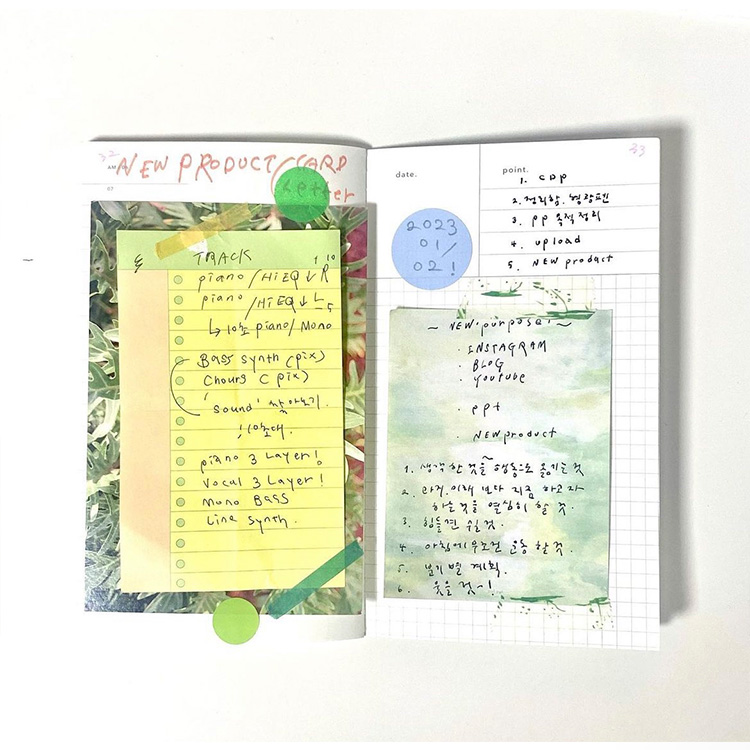 32
NEW PRODUCT/CARD
Letter
AM
07
TRACK
piano/Hi EQ ↓ R
piano/Hi EQ ↓ L
↳ 10초 piano/Mono
Bass synth (pix)
Chours C pix)
'Sound' 찾아보기
10초대.
piano 3 Layer!
Vocal 3 Layer!
Mono BASS
Line synth.
33
date.
2023
01/
02!
point.
1. CDP
2. 정리함.
3. PP 목적 정리
4. upload
5. NEW product
~ NEW purpose! ~
· INSTAGRAM
· BLOG
· Youtube
· ppt
· NEW product
1. 생각한 것을 행동으로 옮기는 것
2. 과거.미래 보다 지금 하고자
하는것을 열심히 할 것.
3. 힘들면 쉴것.
4. 아침에 무조건 운동 할 것.
5. 분기별 계획.
6. 웃을 것~!